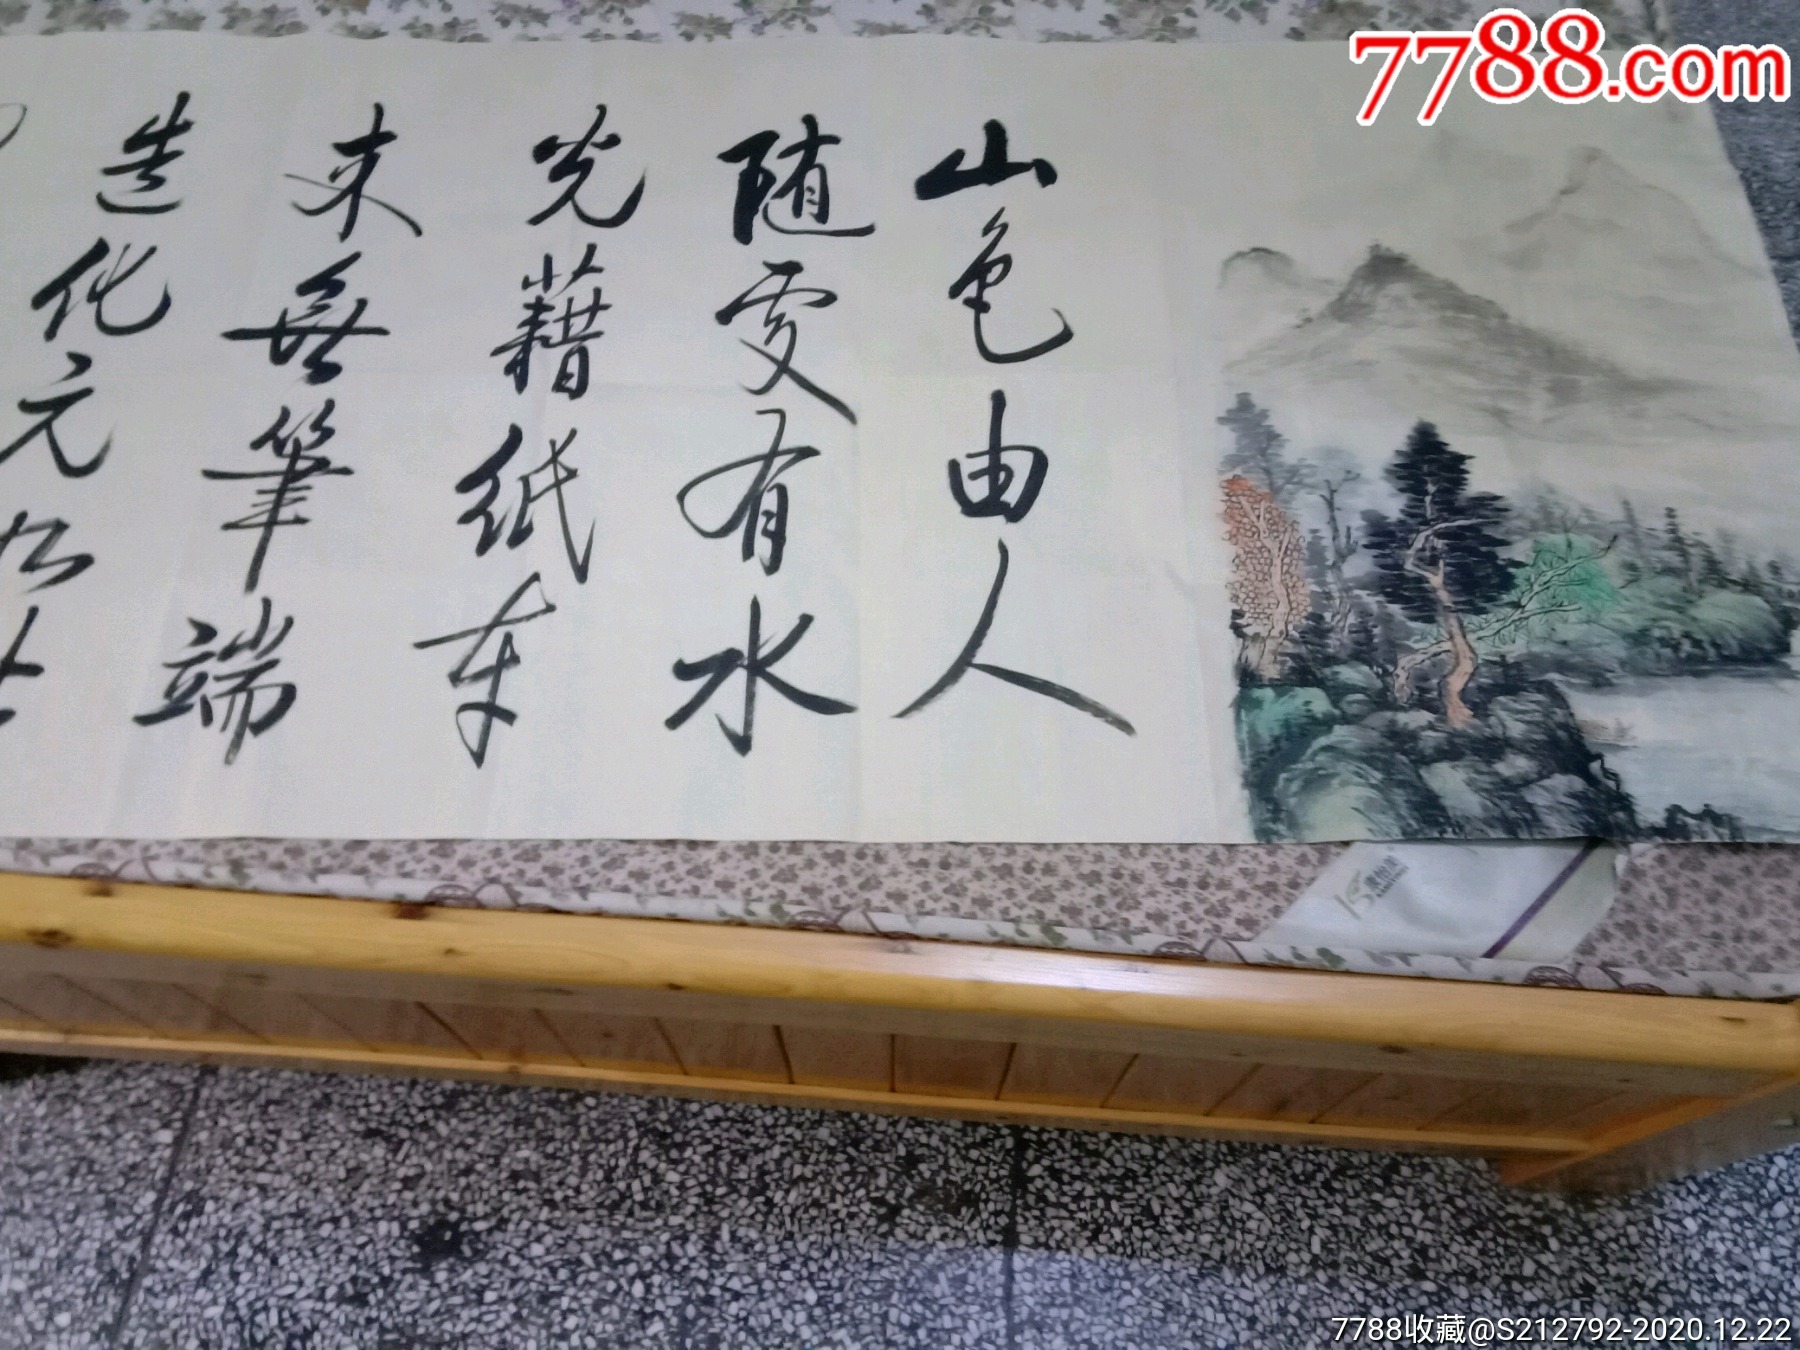 7788.com
山色由人
随處有水
光藉纸本
来無筆端
造化元
7788收藏@S212792-2020.12.22